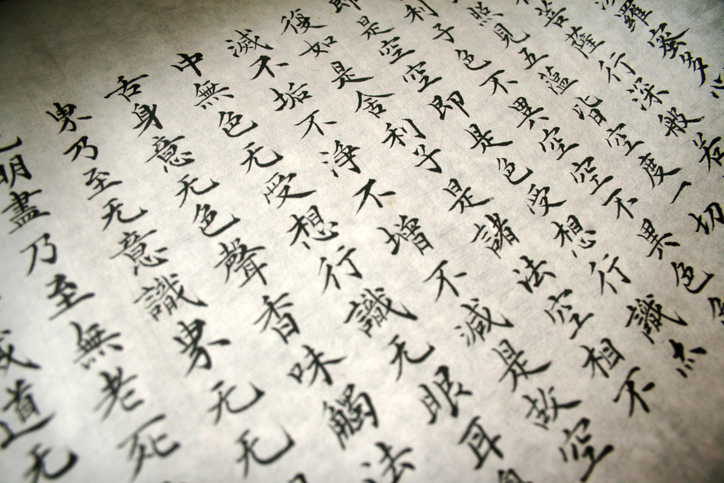 羅蜜多心
菩薩行深般若
照見五蘊皆空度一切
利子色不異空空不異色
即是空空即是色受想行識亦
復如是舍利子是諸法空相不
滅不垢不淨不增不減是故空
中無色无受想行識无眼耳
舌身意无色聲香味觸法
界乃至无意識界无无
明盡乃至無老死
道无